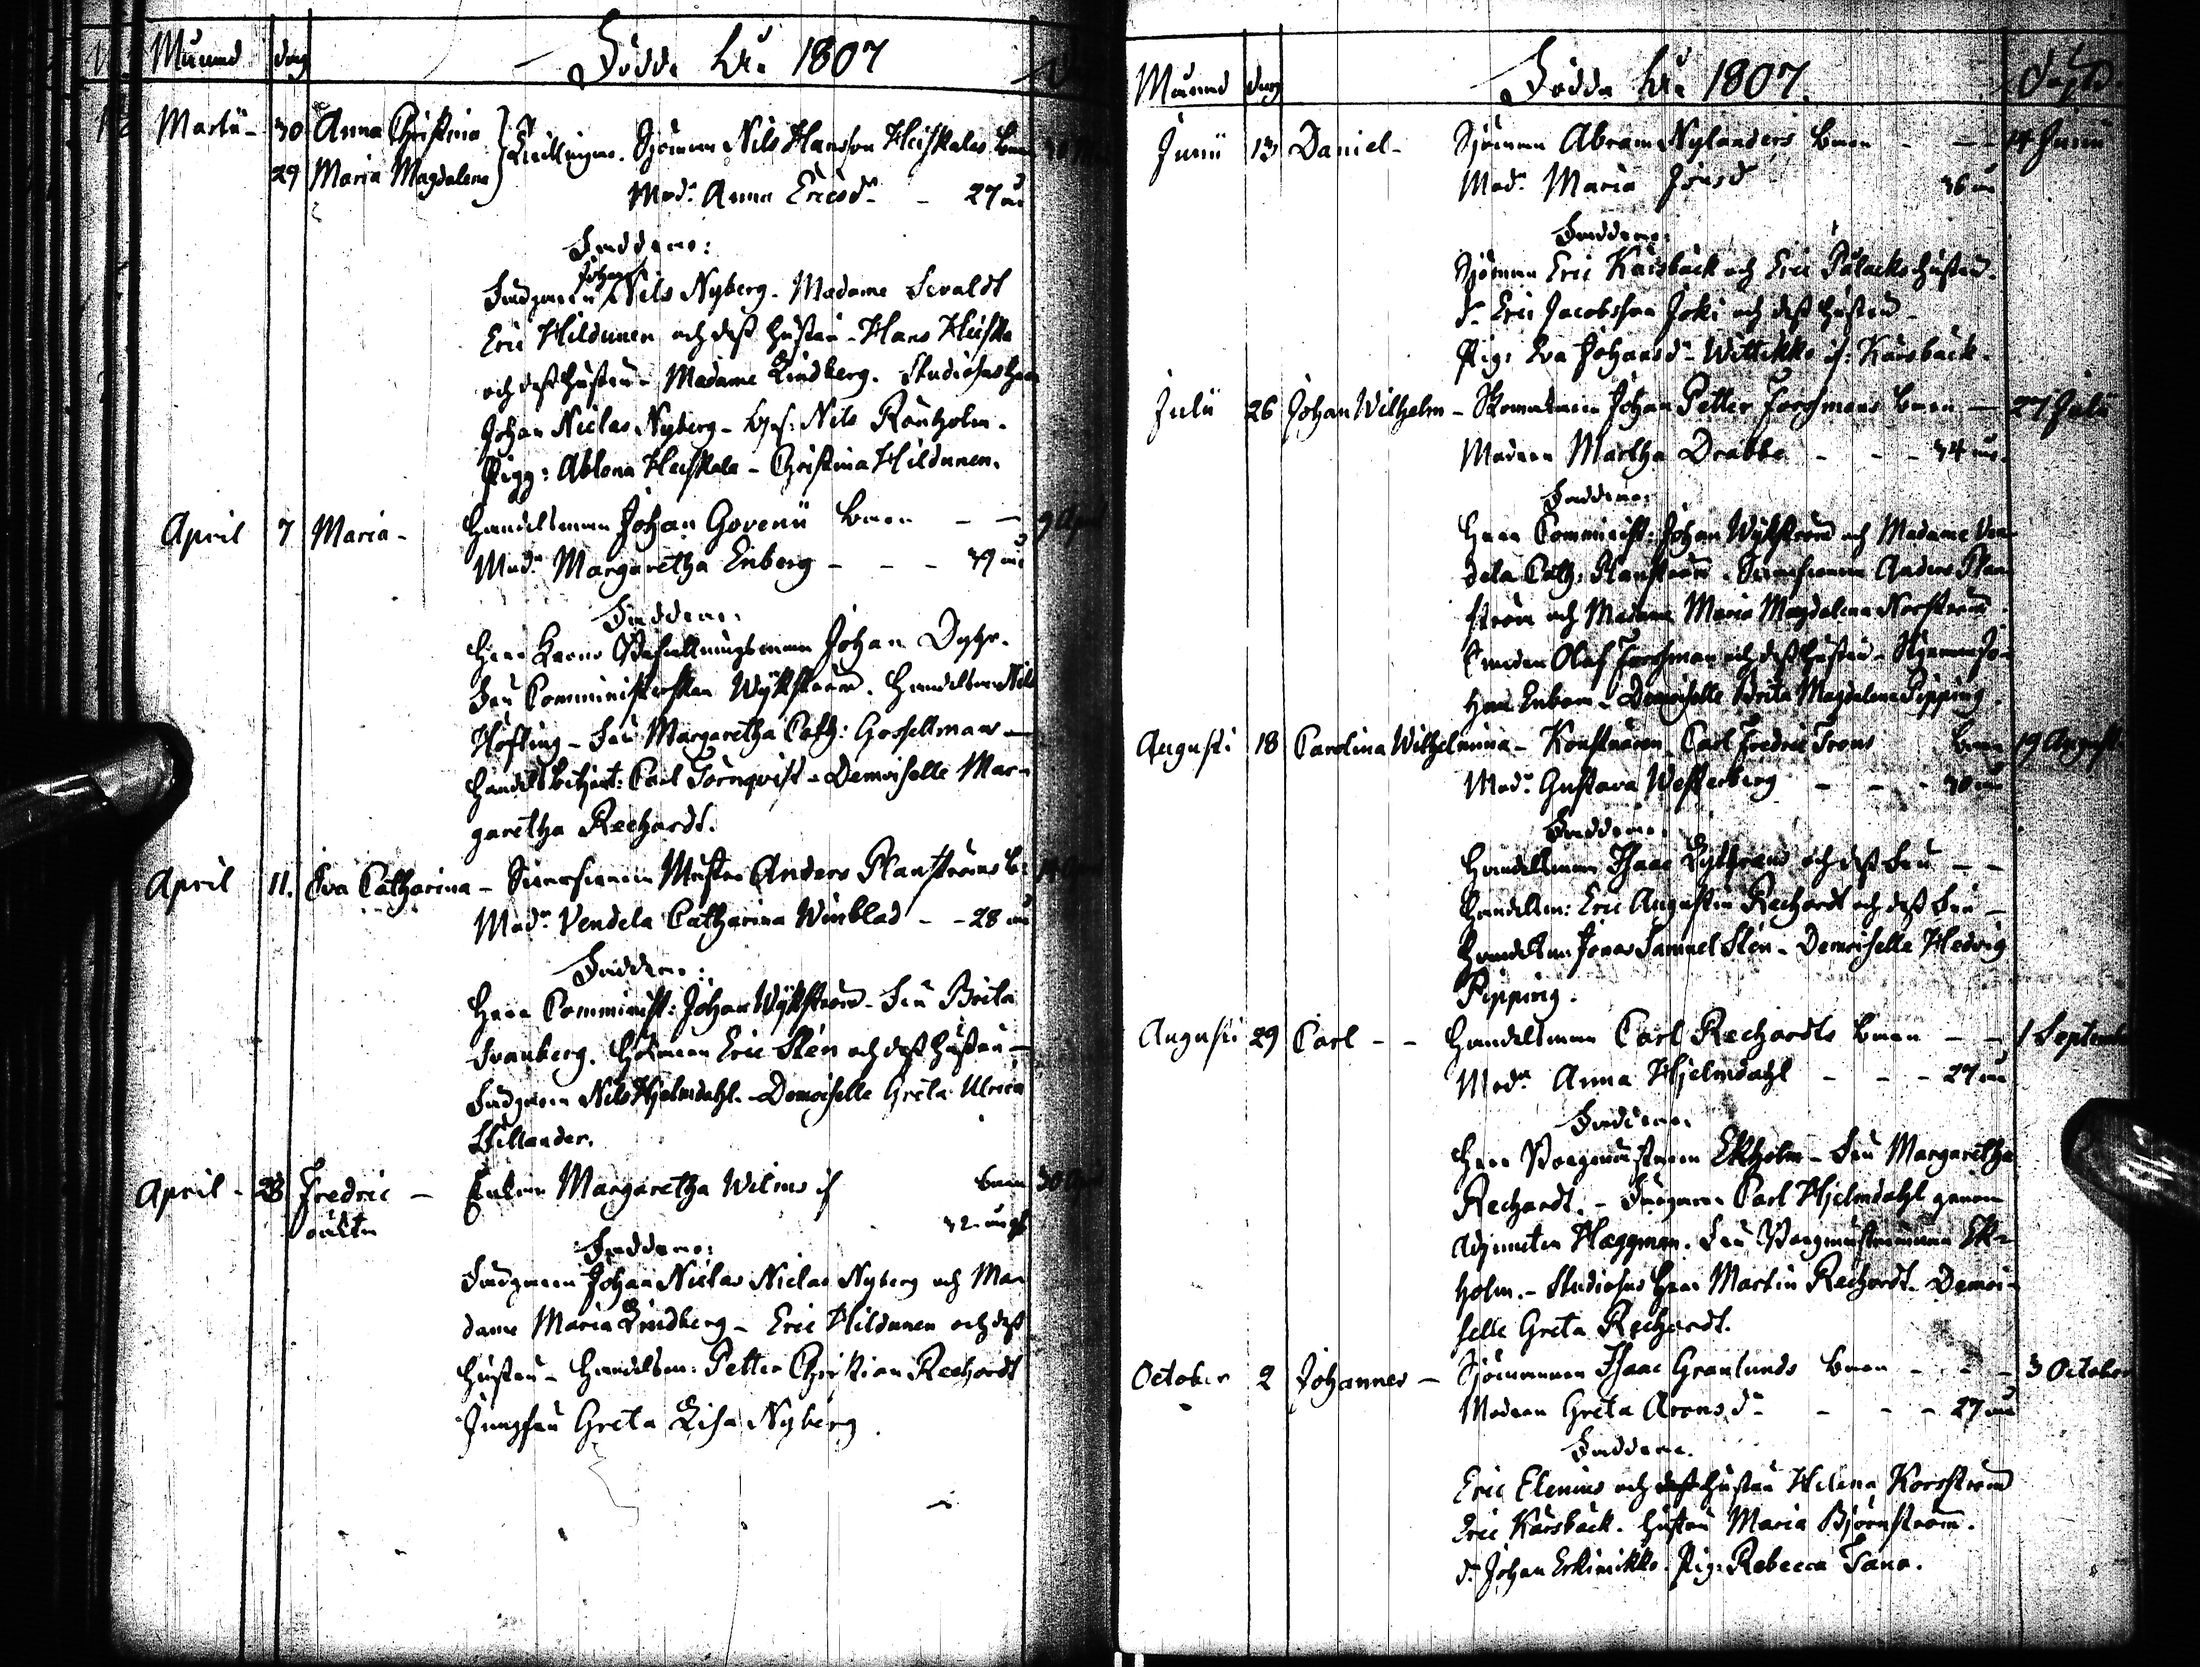 Månad dag Födde År 1807
Martii - 30 Anna Christina
29 Maria Magdalena
Tvillingar. Sjöman Nils Hansson Heiskalas barn
Mod:n Anna Ericsd:r - 27 år
Faddrar:
Johan
Nils Nyberg. Madame Sevaldt
Eric Hildunen och dess hustru - Hans Heiska
och dess hustru - Madame Lindberg. Studiosus herr
Johan Niclas Nyberg - Nils Rönholm.
Pigg: Ablona Heiskala - Christina Hildunen.
April 7 Maria - Handelsman Johan Govenii barn - - 9 April
Mod:n Margaretha Enberg - - - 39 år
Faddrar:
Herr Krono Befallningsman Johan Dyhr.
Fru Comministerskan Wykström. Handelsman Nils
Höfling - Fru Margaretha Cath: Gosselman -
Handelsbetjent: Carl Törnqvist - Demoiselle Mar-
garetha Rechardt.
April 11. Eva Catharina - Mäster Anders Planströms b:
Mod:n Vendela Catharina Winblad - - 28 år
Faddrar:
Herr Comminist: Johan Wykström - Fru Brita
Svanberg. Eric Stén och dess hustru -
Nils Hjelmdahl. - Demoiselle Greta Ulrica
Chillander.
April - 28 Fredric - Enkan Margaretha Wilms barn 30 April
oäkta 32 år
Faddrar:
Johan Niclas Niclas Nyberg och Ma-
dame Maria Lindberg - Eric Hildunen och dess
hustru - Handelsm: Petter Christian Rechardt
Jungfru Greta Lisa Nyberg.
Månad dag Födda År 1807. Döpte.
Junii 13 Daniel - Sjöman Abram Nylanders barn - - 14 Junii
Mod:n Maria Jönsd:r 36 år
Faddrar:
Sjöman Eric Karsbäck och Eric Palacks hustru.
d:o Eric Jacobsson Joki och dess hustru -
Pig: Eva Johansd:r Wittikko Karsbäck.
Julii 26 Johan Wilhelm - Skomakaren Johan Petter Forssmans barn - 27 Julii
Modren Martha Drabbe - - - 34 år.
Faddrar:
Herr Comminist: Johan Wykström och Madame Ven-
dela Cath: Planström. Anders Plan-
ström och Madame Maria Magdalena Norström.
Olof Forssman och dess hustru - Jo-
han Enbom - Demoiselle Brita Magdalena Pipping.
Augusti 18 Carolina Wilhelmina - Konstnären Carl Fredric Trons barn 19 Augusti
Mod:n Gustava Westerberg - - - 30 år
Faddrar:
Handelsman Isaac Lythrand och dess Fru - -
Handelsm: Eric Augustin Rechardt och dess Fru -
Handelsm Jonas Samuel Stén - Demoiselle Hedvig
Pipping.
Augusti 29 Carl - - Handelsman Carl Rechardts barn - - 1 September
Mod:n Anna Hjelmdahl - - - 27 år
Faddrar:
Herr Borgmästaren Ekholm - Fru Margaretha
Rechardt. - Carl Hjelmdahl genom
Adjuncten Hæggman. Fru Borgmästarinnan Ek-
holm. - Studiosus herr Martin Rechardt. Demoi-
selle Greta Rechardt.
October 2 Johannes - Sjömannen Isaac Granlunds barn - - - 3 October
Modren Greta Aronsd:r - - - 27 år
Faddrar.
Eric Elenius och hustru Helena Korsström
Eric Karsbäck. Hustru Maria Björnström.
d:o Johan Erkinikko. Pig: Rebecca Tana.